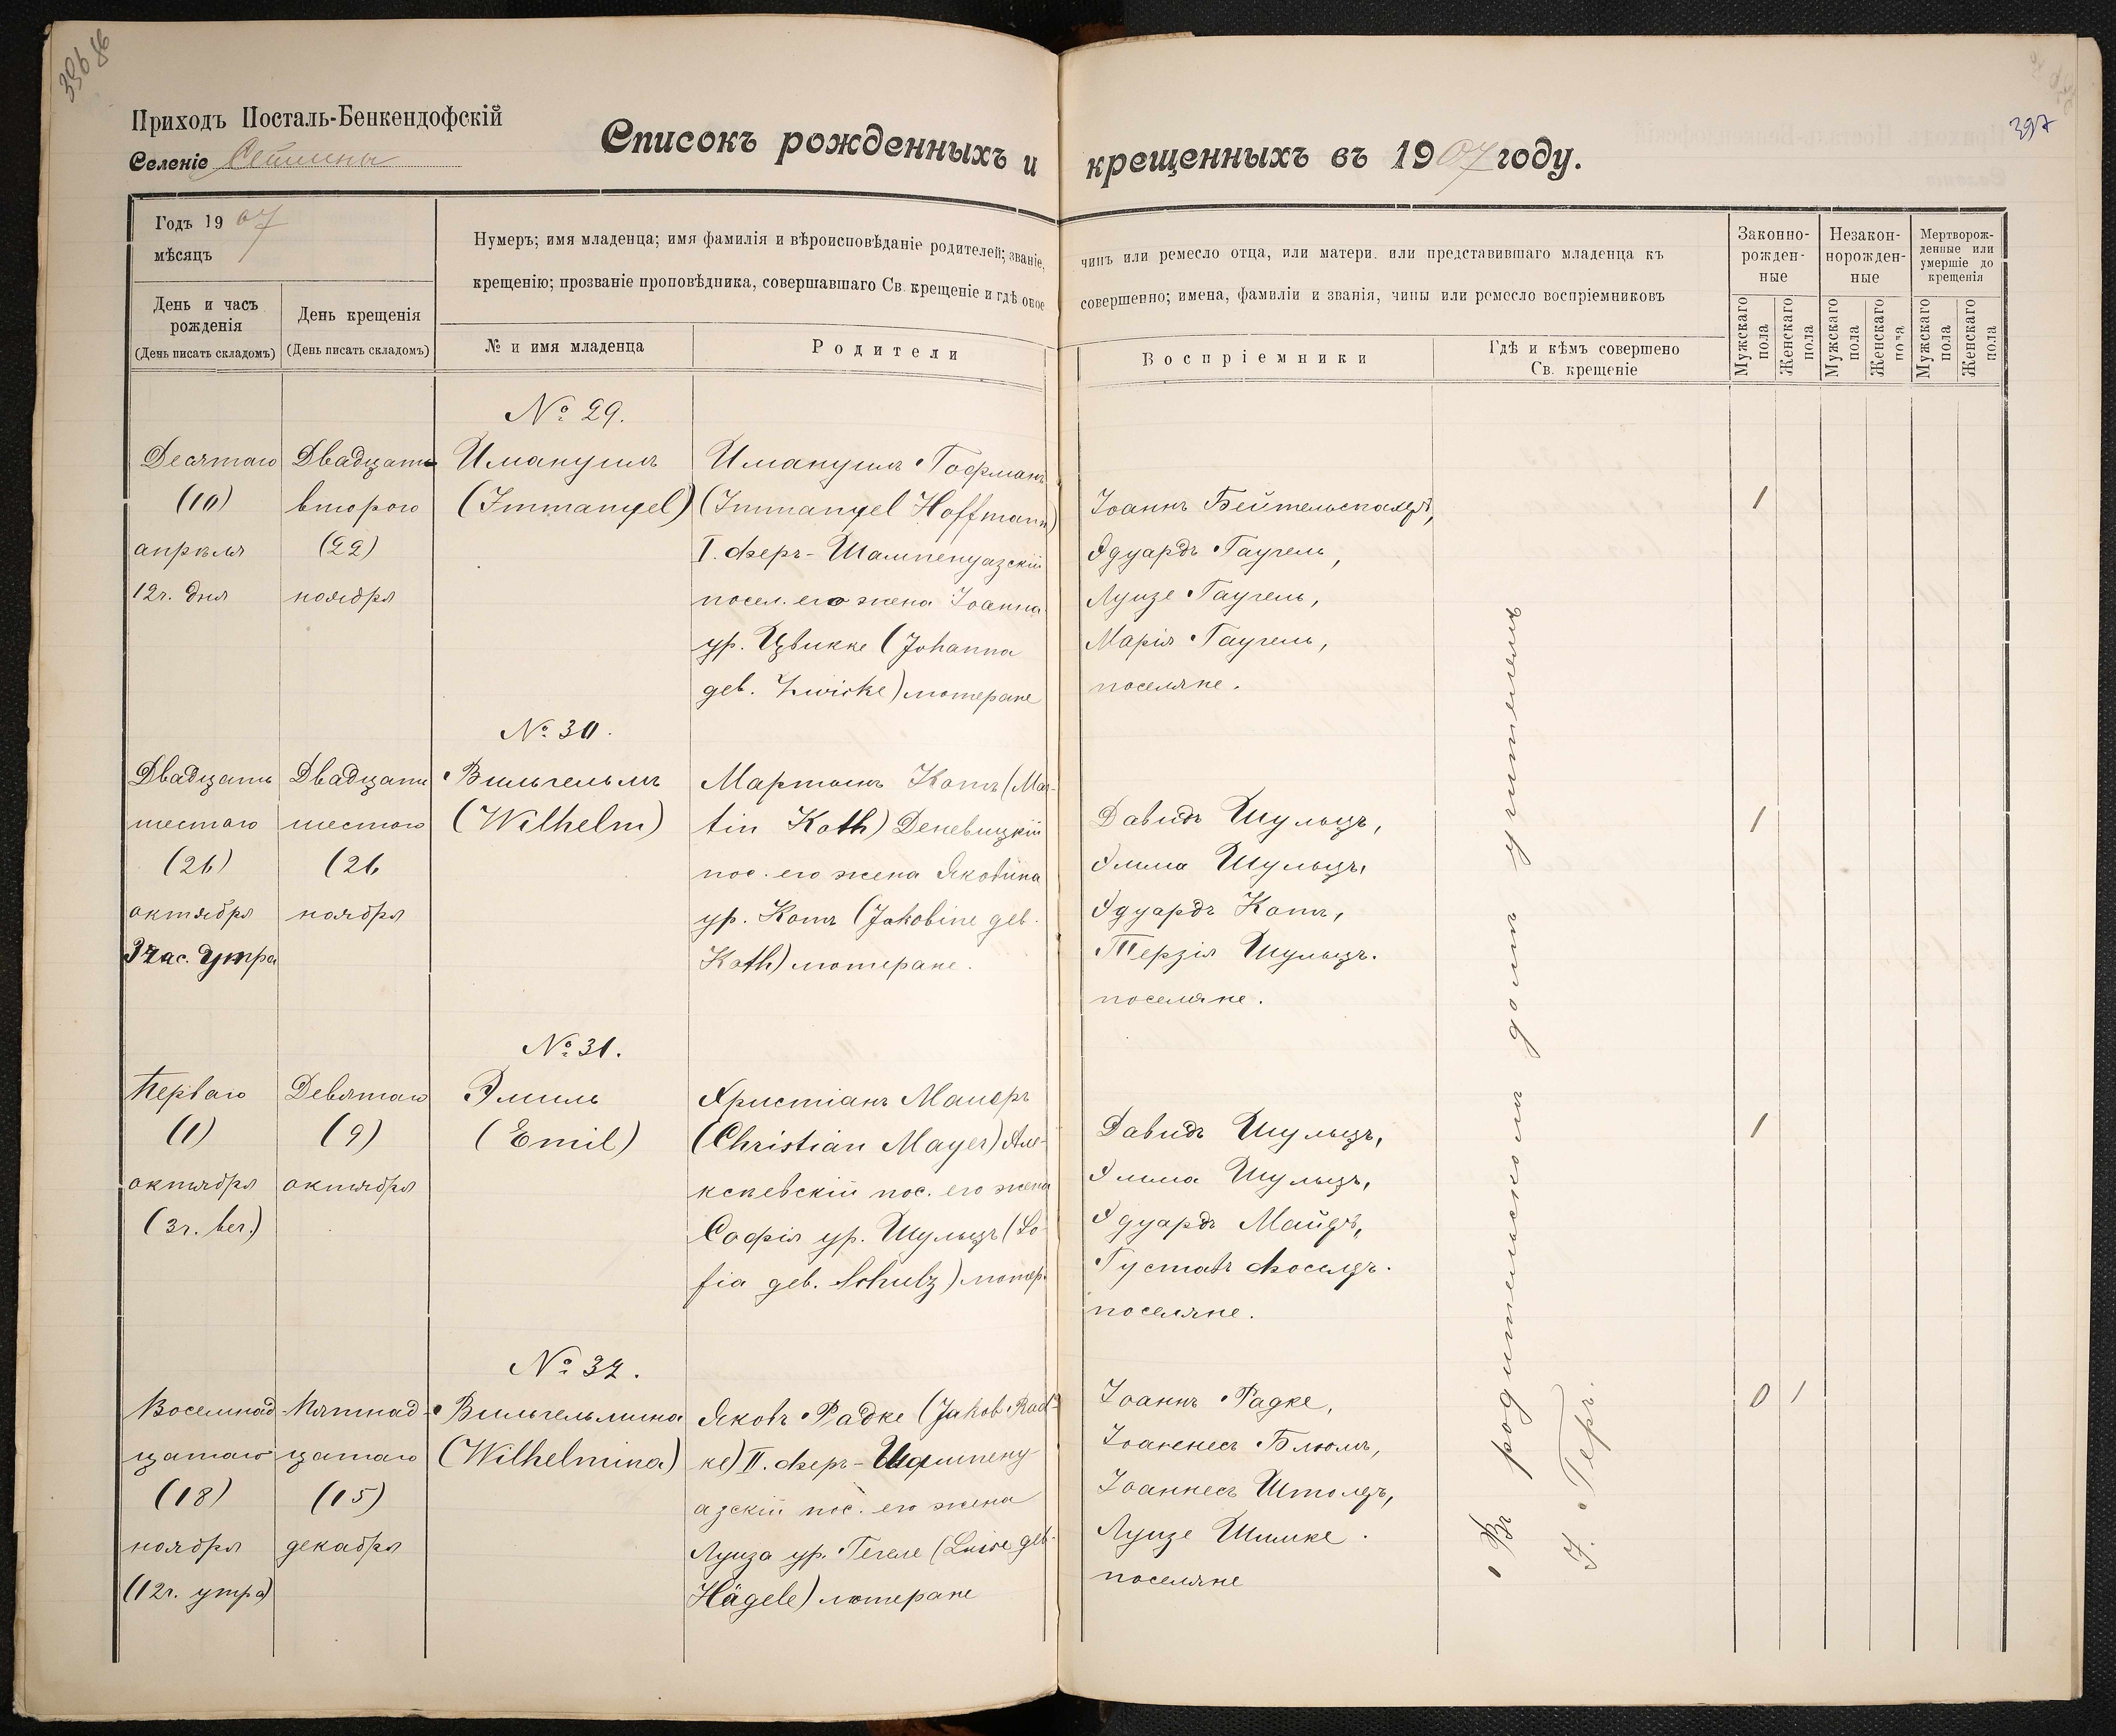 396 86
397
Приходъ Посталь-Бенкендофскій
Селеніе
Списокъ рожденныхъ и крещенныхъ въ 1907 году.
Годъ 1907
мѣсяцъ
Нумеръ; имя младенца; имя фамилія и вѣроисповѣданіе родителей; званіе, чинъ или ремесло отца, или матери. или представившаго младенца къ
крещенію; прозваніе проповѣдника, совершавшаго Св. крещеніе и гдѣ оное совершенно; имена, фамиліи и званія, чины или ремесло воспріемниковъ
День и часъ рожденія
(День писать складомъ)
День крещенія
(День писать складомъ)
№ и имя младенца
Родители
Воспріемники
Гдѣ и кѣмъ совершено
Св. крещеніе
Законно-
рожден-
ные
Незакон-
норожден-
ные
Мертворож-
денные или
умершіе до
крещенія
Мужскаго пола
Женскаго пола
Мужскаго пола
Женскаго пола
Мужскаго пола
Женскаго пола
№ 29.
Десятаго
(10)
апрѣля
12ч. дня
Двадцать
второго
(22)
ноября
Имануилъ
(Immanuel)
Имануилъ Гофманъ
(Immanuel Hoffmann)
I. Феръ-Шампенуазскій
посел. его жена Іоанна
ур. Цвикке (Johanna
geb. Zwicke) лютеране
Іоаннъ Бейтельспахеръ,
Эдуардъ Гаугель,
Луизе Гаугель,
Марія Гаугель,
поселяне.
1
№ 30.
Двадцать
шестаго
(26)
октября
3 час. утра
Двадцать
шестого
(26
ноября
Вильгельмъ
(Wilhelm)
Мартынъ Котъ (Mar-
tin Koth) Деневицкій
пос. его жена Якобина
ур. Котъ (Jakobine geb.
Koth) лютеране.
Давидъ Шульцъ,
Эмма Шульцъ,
Эдуардъ Котъ,
Терзія Шульцъ.
поселяне.
1
№ 31.
Перваго
(1)
октября
(3ч. веч.)
Девятаго
(9)
октября
Эмиль
(Emil)
Христіанъ Маиеръ
(Christian Mayer) Але-
ксѣевскій пос. его жена
Софія ур. Шульцъ (So-
fia geb. Schulz) лютер.
Давидъ Шульцъ,
Эмма Шульцъ,
Эдуардъ Майеръ,
Густавъ
поселяне.
1
№ 32.
Восемнад
цатаго
(18)
ноября
(12ч. утра)
Пятнад-
цатаго
(15)
декабря
Вильгельмина
(Wilhelmina)
Яковъ Радке (Jakob Rad-
ke) II. Феръ-Шампену
азскій пос. его жена
Луиза ур. Гегеле (Luise geb.
Hägele) лютеране
Іоаннъ Радке,
Іоаннесъ Блюмъ,
Іоаннесъ
Луизе Шимке.
поселяне
0 1
Въ родительскомъ домѣ учителемъ
І. Геръ.